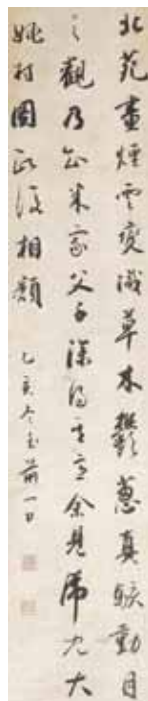 北苑畫煙雲變滅草木鬱葱真駭動目
之觀乃知米家父子深得其意余見九大
姚村圖政復相類
乙亥冬至前一日